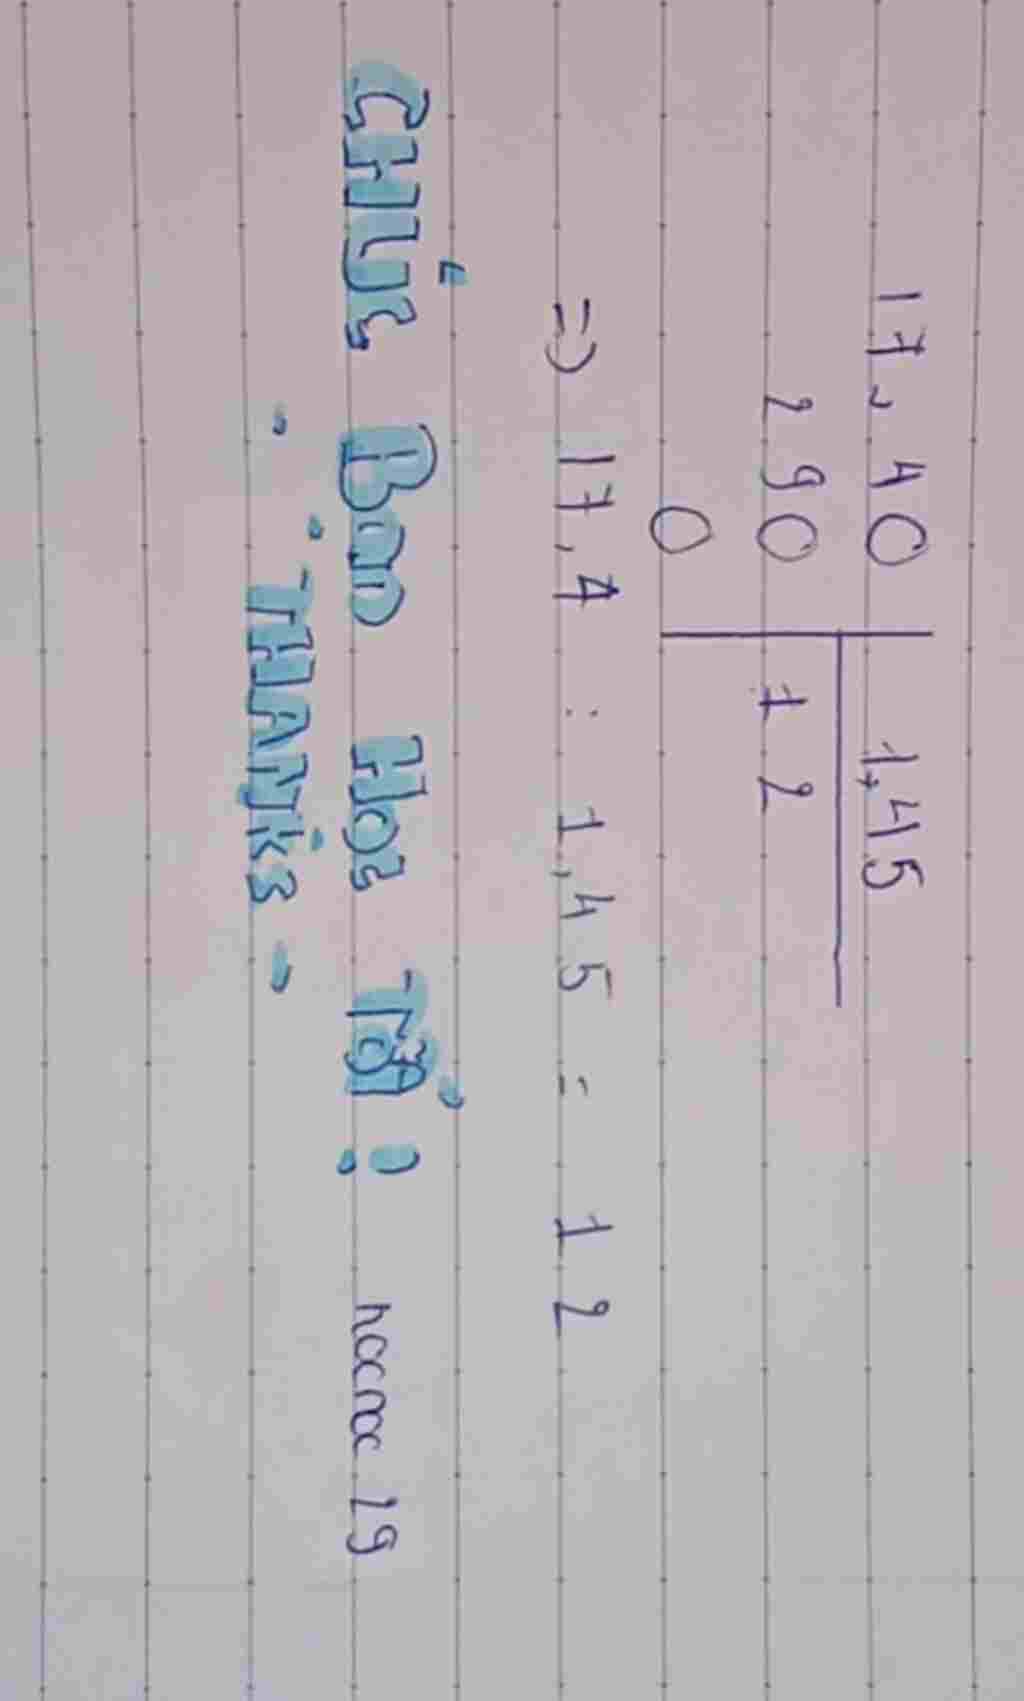 17,40 1,45
290 12
0
=> 17,4 : 1,45 = 12
CHÚC Bạn Học Tốt!
- THANKS -